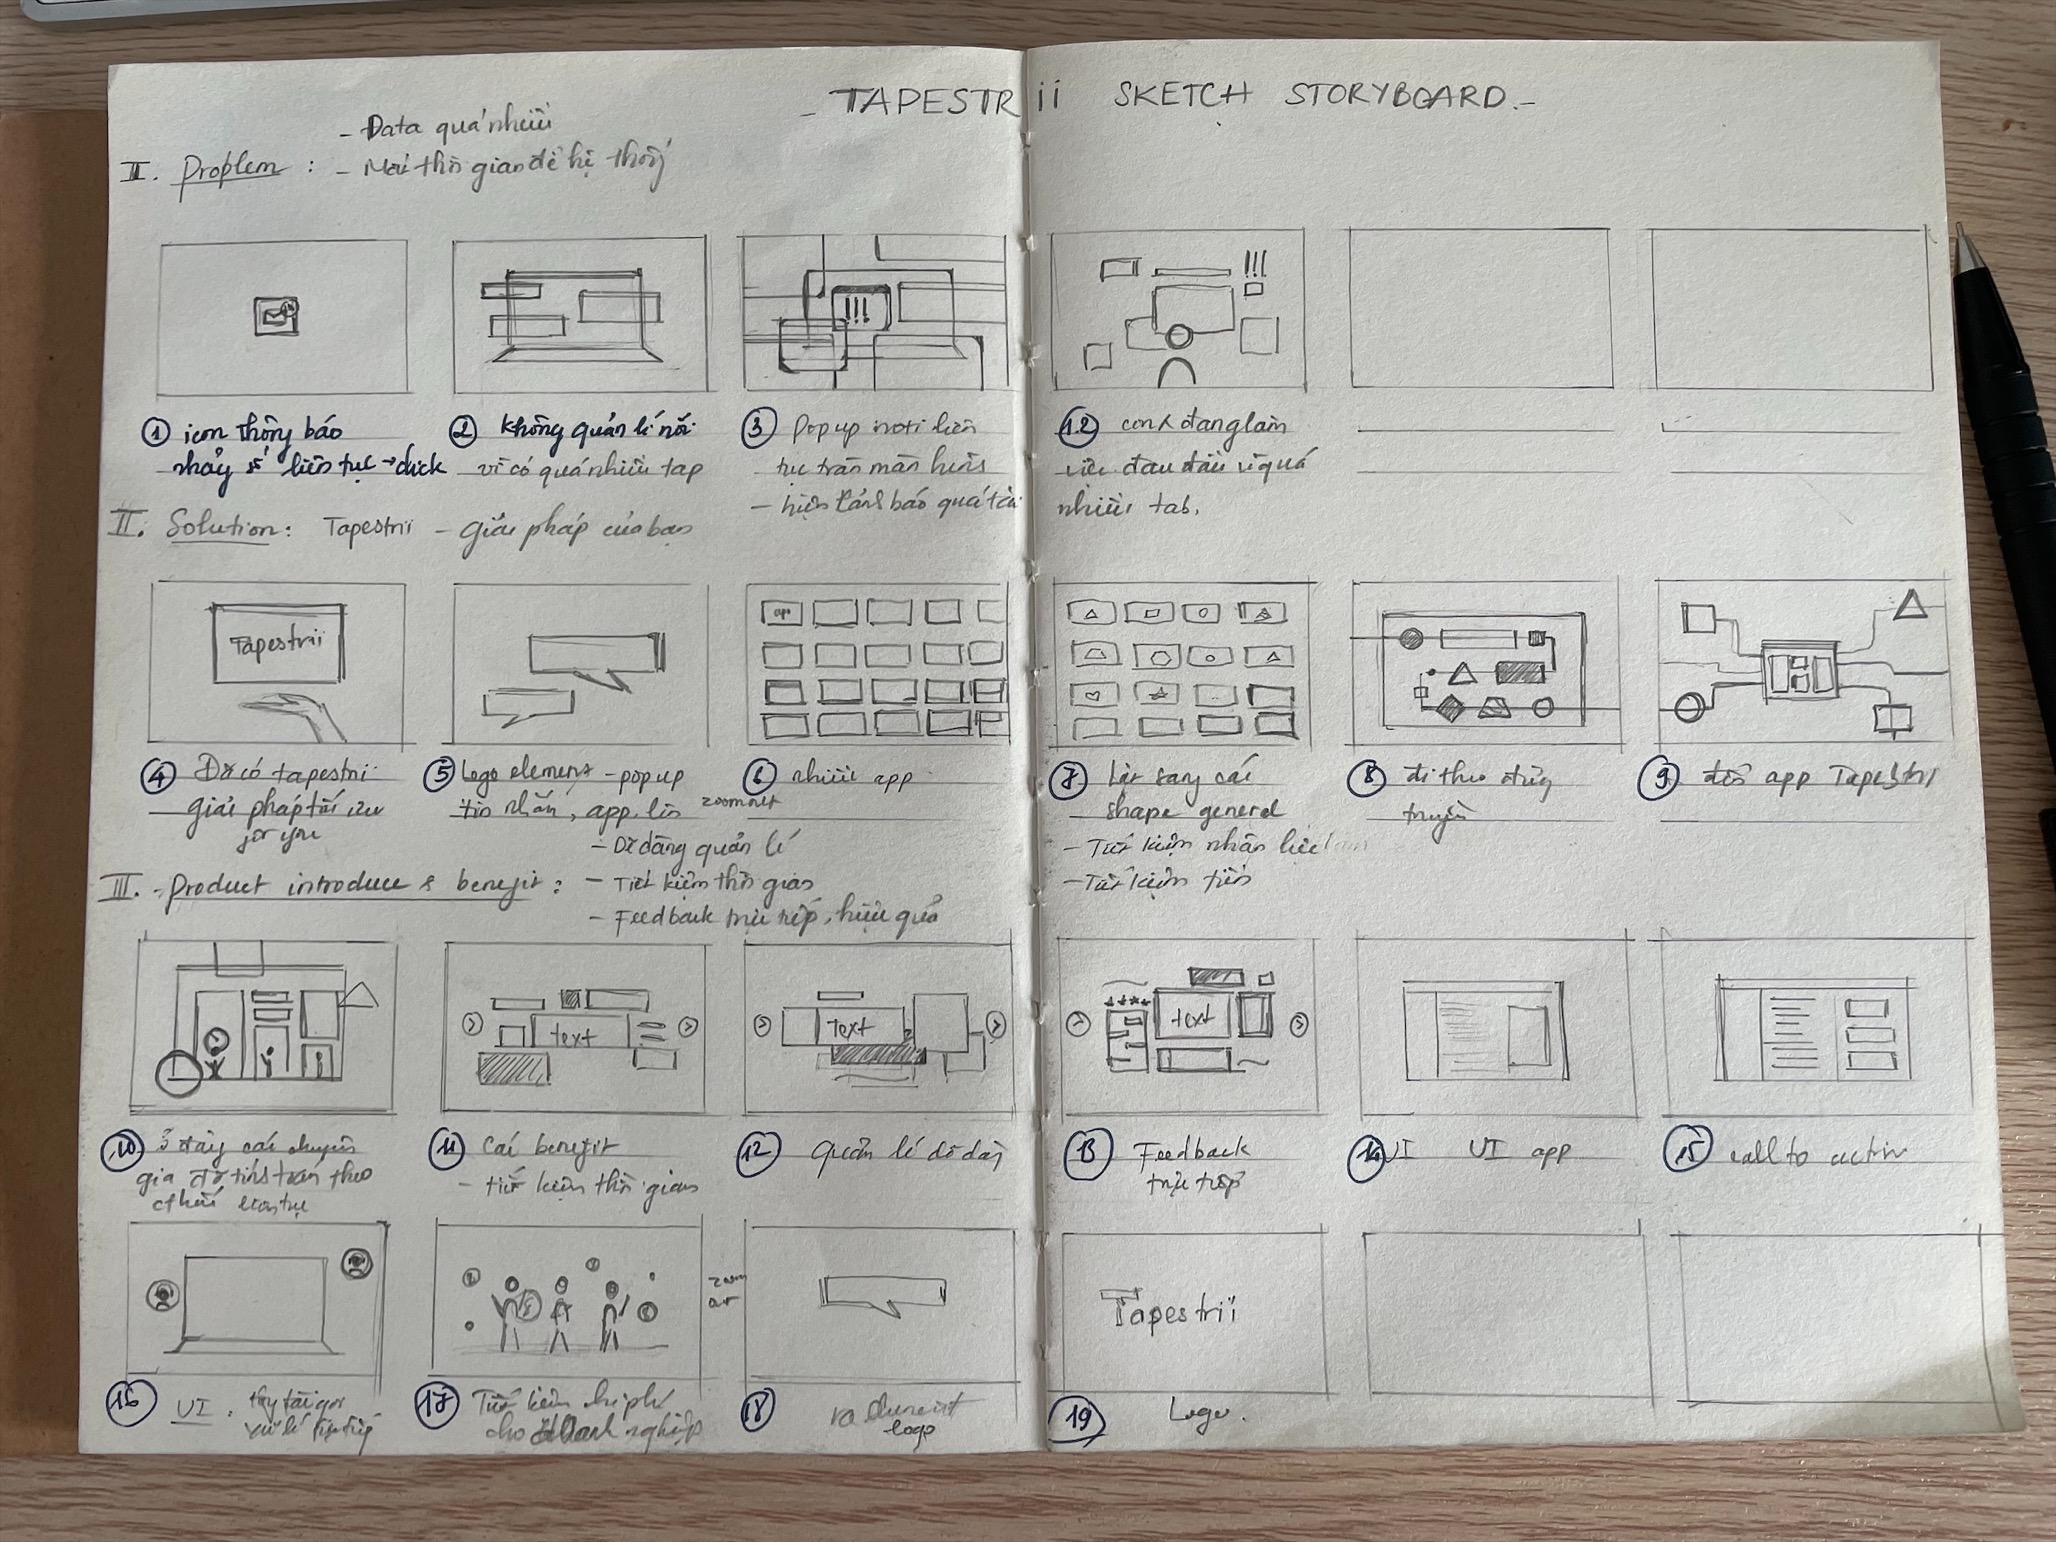 - TAPESTRii SKETCH STORYBOARD. -
- Data quá nhiều
II. Problem : - Mất thời gian để hệ thống
!!!
!!!
① icon thông báo
nhảy số liên tục → click
② không quản lí nổi
vì có quá nhiều tap
③ Pop up noti liên
tục tràn màn hình
- hiện cảnh báo quá tải
1.2 đang làm
việc đau đầu vì quá
nhiều tab.
II. Solution: Tapestrii - giải pháp của bạn
Tapestrii
app
④ Đã có tapestri
giải pháp tối ưu
for you
⑤ Logo element - pop up
tin nhắn, app lên zoom out
⑥ nhiều app
⑦ Lật sang cái
shape general
⑧ đi theo đường
truyền
⑨ đến app Tapestri
III. - Product introduce & benefit :
- Dễ dàng quản lí
- Tiết kiệm thời gian
- Feedback trực tiếp, hiệu quả
- Tiết kiệm nhân lực
- Tiết kiệm tiền
text
Text
text
⑩ Ở đây các chuyên
gia tính toán theo
⑪ Cái benefit
- tiết kiệm thời gian
⑫ Quản lí dễ dàng
⑬ Feedback
trực tiếp
⑭ UI UI app
⑮ call to action
zoom
out
Tapestrii
⑯ UI.
⑰ Tiết kiệm chi phí
cho doanh nghiệp
⑱ ra element
logo
⑲ Logo.